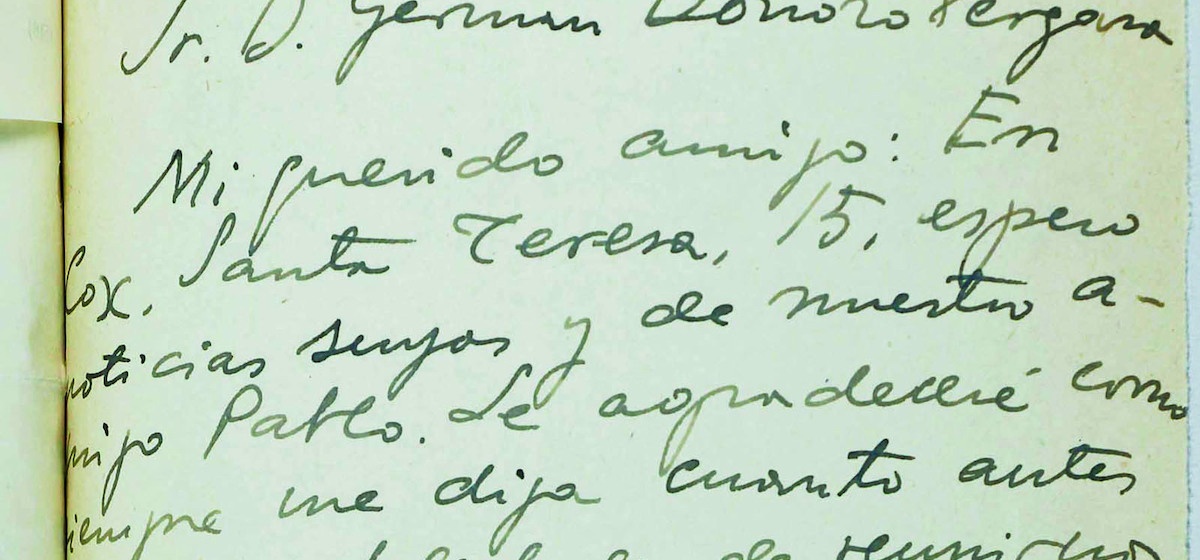 Sr. D. Germán Vergara
Mi querido amigo: En
Cox, Santa Teresa, 15, espero
noticias suyas y de nuestro a-
migo Pablo. Le agradeceré como
siempre me diga cuanto antes
de